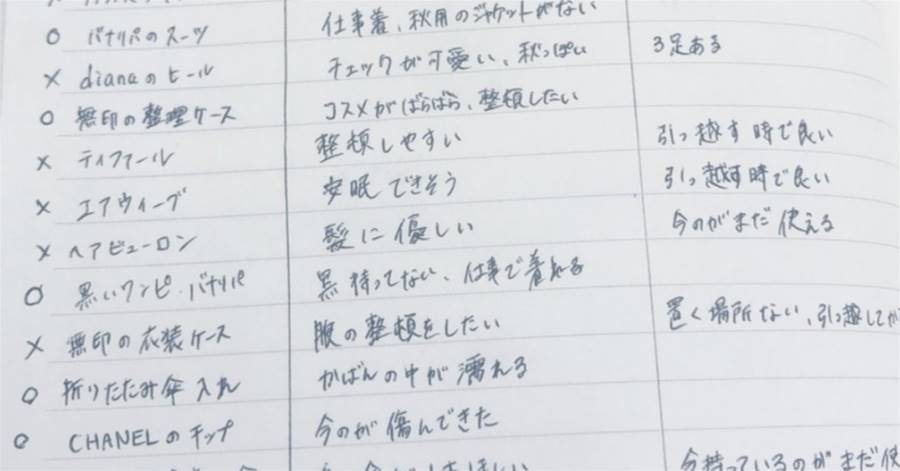 ○ バナリパのスーツ 仕事着、秋用のジャケットがない
× dianaのヒール チェックが可愛い、秋っぽい 3足ある
○ 無印の整理ケース コスメがばらばら、整頓したい
× ティファール 整頓しやすい 引っ越す時で良い
× エアウィーヴ 安眠できそう 引っ越す時で良い
× ヘアビューロン 髪に優しい 今のがまだ使える
○ 黒いワンピ・バナリパ 黒持ってない、仕事で着れる
× 無印の衣装ケース 服の整頓をしたい 置く場所ない、引っ越してか
○ 折りたたみ傘入れ かばんの中が濡れる
○ CHANELのチップ 今のが傷んできた
今持っているのがまだ使